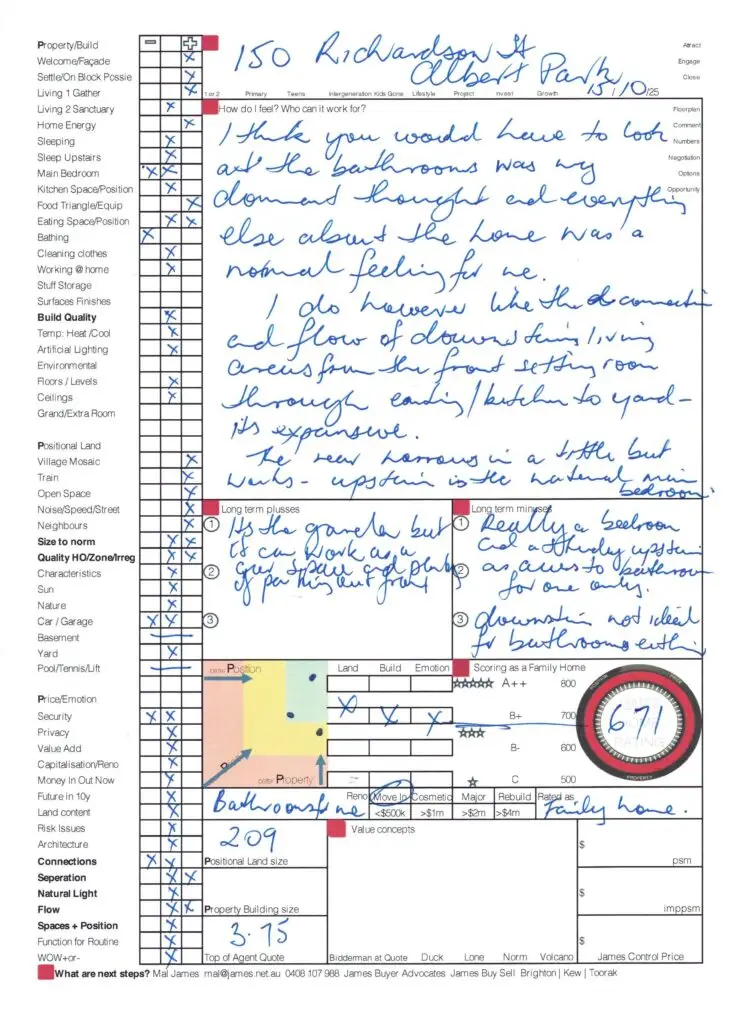 Property/Build
Welcome/Façade
Settle/On Block Possie
Living 1 Gather
Living 2 Sanctuary
Home Energy
Sleeping
Sleep Upstairs
Main Bedroom
Kitchen Space/Position
Food Triangle/Equip
Eating Space/Position
Bathing
Cleaning clothes
Working @ home
Stuff Storage
Surfaces Finishes
Build Quality
Temp: Heat /Cool
Artificial Lighting
Environmental
Floors / Levels
Ceilings
Grand/Extra Room
Positional Land
Village Mosaic
Train
Open Space
Noise/Speed/Street
Neighbours
Size to norm
Quality HO/Zone/Irreg
Characteristics
Sun
Nature
Car / Garage
Basement
Yard
Pool/Tennis/Lift
Price/Emotion
Security
Privacy
Value Add
Capitalisation/Reno
Money In Out Now
Future in 10y
Land content
Risk Issues
Architecture
Connections
Seperation
Natural Light
Flow
Spaces + Position
Function for Routine
WOW+or-
150 Richardson St
Albert Park
15/10/25
Attract
Engage
Close
1 or 2 Primary Teens Intergeneration Kids Gone Lifestyle Project Invest Growth
How do I feel? Who can it work for?
Floorplan
Comment
Numbers
Negotiation
Options
Opportunity
I think you would have to look
at the bathrooms was my
thought and everything
else about the home was a
normal feeling for me.
I do however like the connection
and flow of downstairs living
areas from the front sitting room
through eating/kitchen to yard -
its expansive.
The rear narrows in a little but
works - upstairs is the natural main
bedroom.
Long term plusses
1 Its the but
it can work as a
2 space and plenty
of parking out front
3
Long term minuses
1 Really a bedroom
upstairs
2 as access to bathroom
for one only.
3 downstairs not ideal
for bathrooms either
Position
Property
Land Build Emotion
Scoring as a Family Home
A++ 800
B+ 700
B- 600
C 500
671
PROPERTY
Bathrooms for me
Reno Move In Cosmetic Major Rebuild Rated as
<$500k >$1m >$2m >$4m
Family home.
209
Positional Land size
Property Building size
3.75
Top of Agent Quote
Value concepts
Bidderman at Quote Duck Lone Norm Volcano
$
psm
$
imppsm
$
James Control Price
What are next steps? Mal James mal@james.net.au 0408 107 988 James Buyer Advocates James Buy Sell Brighton | Kew | Toorak